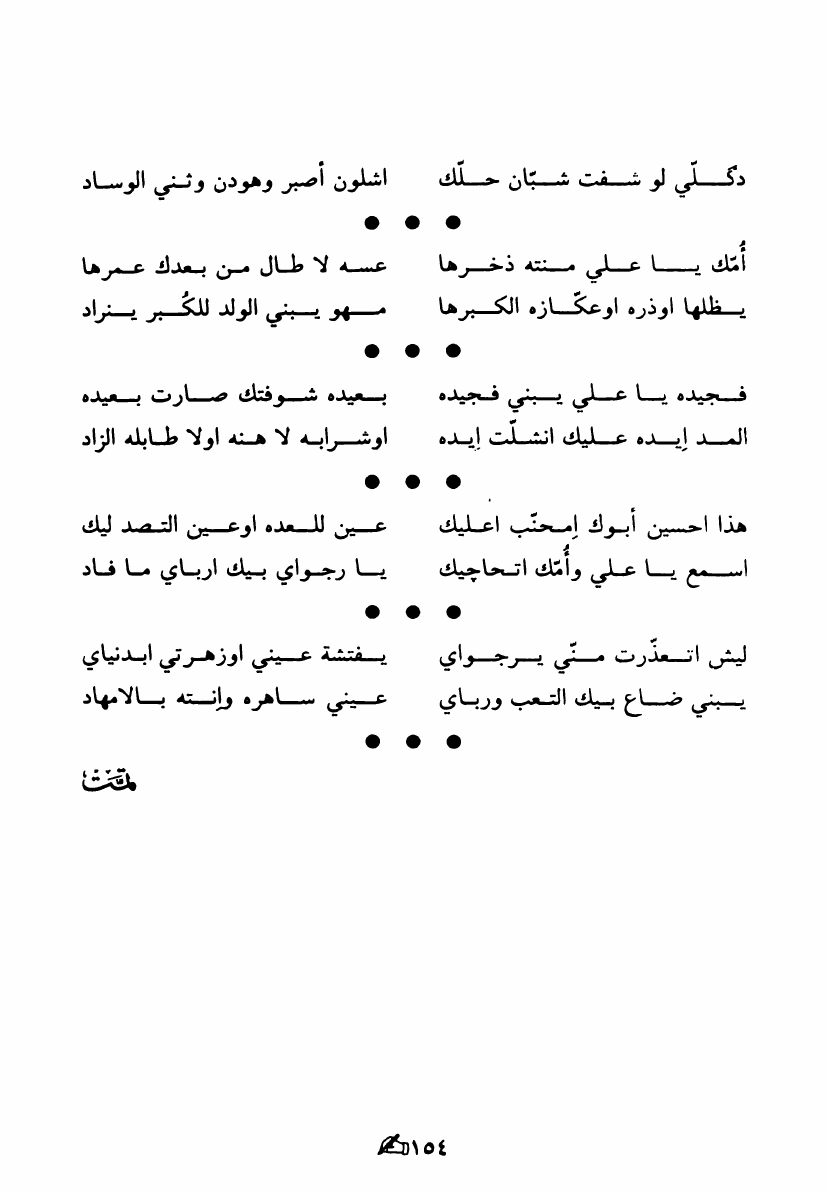 دگلّي لو شفت شبّان حلّك اشلون أصبر وهودن وثني الوساد
● ● ●
أُمّك يا علي منته ذخرها عسه لا طال من بعدك عمرها
يظلها اوذره اوعكّازه الكبرها مهو يبني الولد للكُبر ينراد
● ● ●
فجيده يا علي يبني فجيده بعيده شوفتك صارت بعيده
المد إيده عليك انشلّت إيده اوشرابه لا هنه اولا طابله الزاد
● ● ●
هذا احسين أبوك إمحنّب اعليك عين للعده اوعين التصد ليك
اسمع يا علي وأُمّك اتحاچيك يا رجواي بيك ارباي ما فاد
● ● ●
ليش اتعذّرت منّي يرجواي يفتشة عيني اوزهرتي ابدنياي
يبني ضاع بيك التعب ورباي عيني ساهره وإنته بالامهاد
● ● ●
تمّت
١٥٤